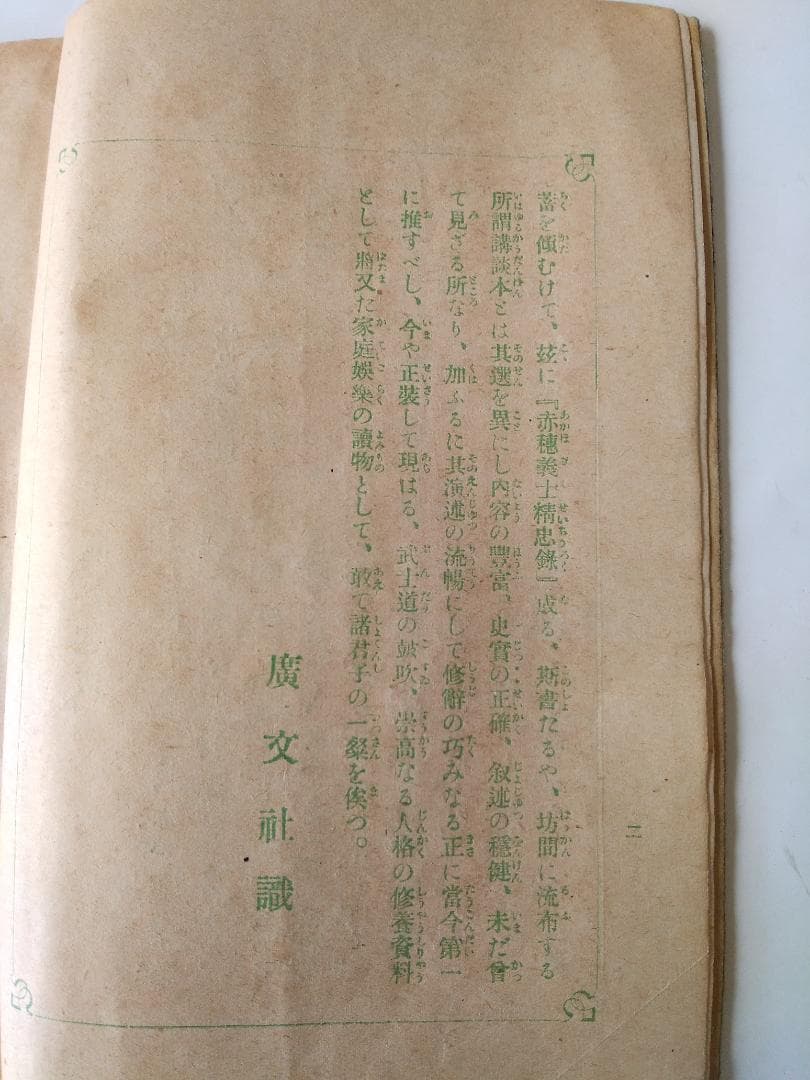 蓄を傾むけて、玆に『赤穗義士精忠錄』成る、斯書たるや、坊間に流布する
所謂講談本とは其選を異にし內容の豐富、史實の正確、叙述の穩健、未だ曾
て見ざる所なり、加ふるに其演述の流暢にして修辭の巧みなる正に當今第一
に推すべし、今や正裝して現はる、武士道の鼓吹、崇高なる人格の修養資料
として將又た家庭娛樂の讀物として、敢て諸君子の一粲を俟つ。
廣文社識
二